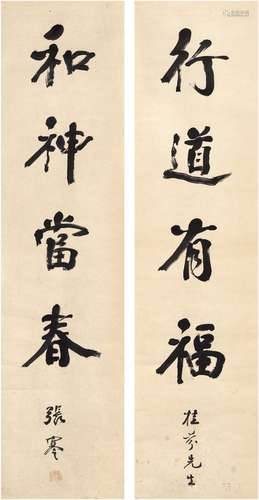 行道有福
桂芬先生
和神當春
張謇